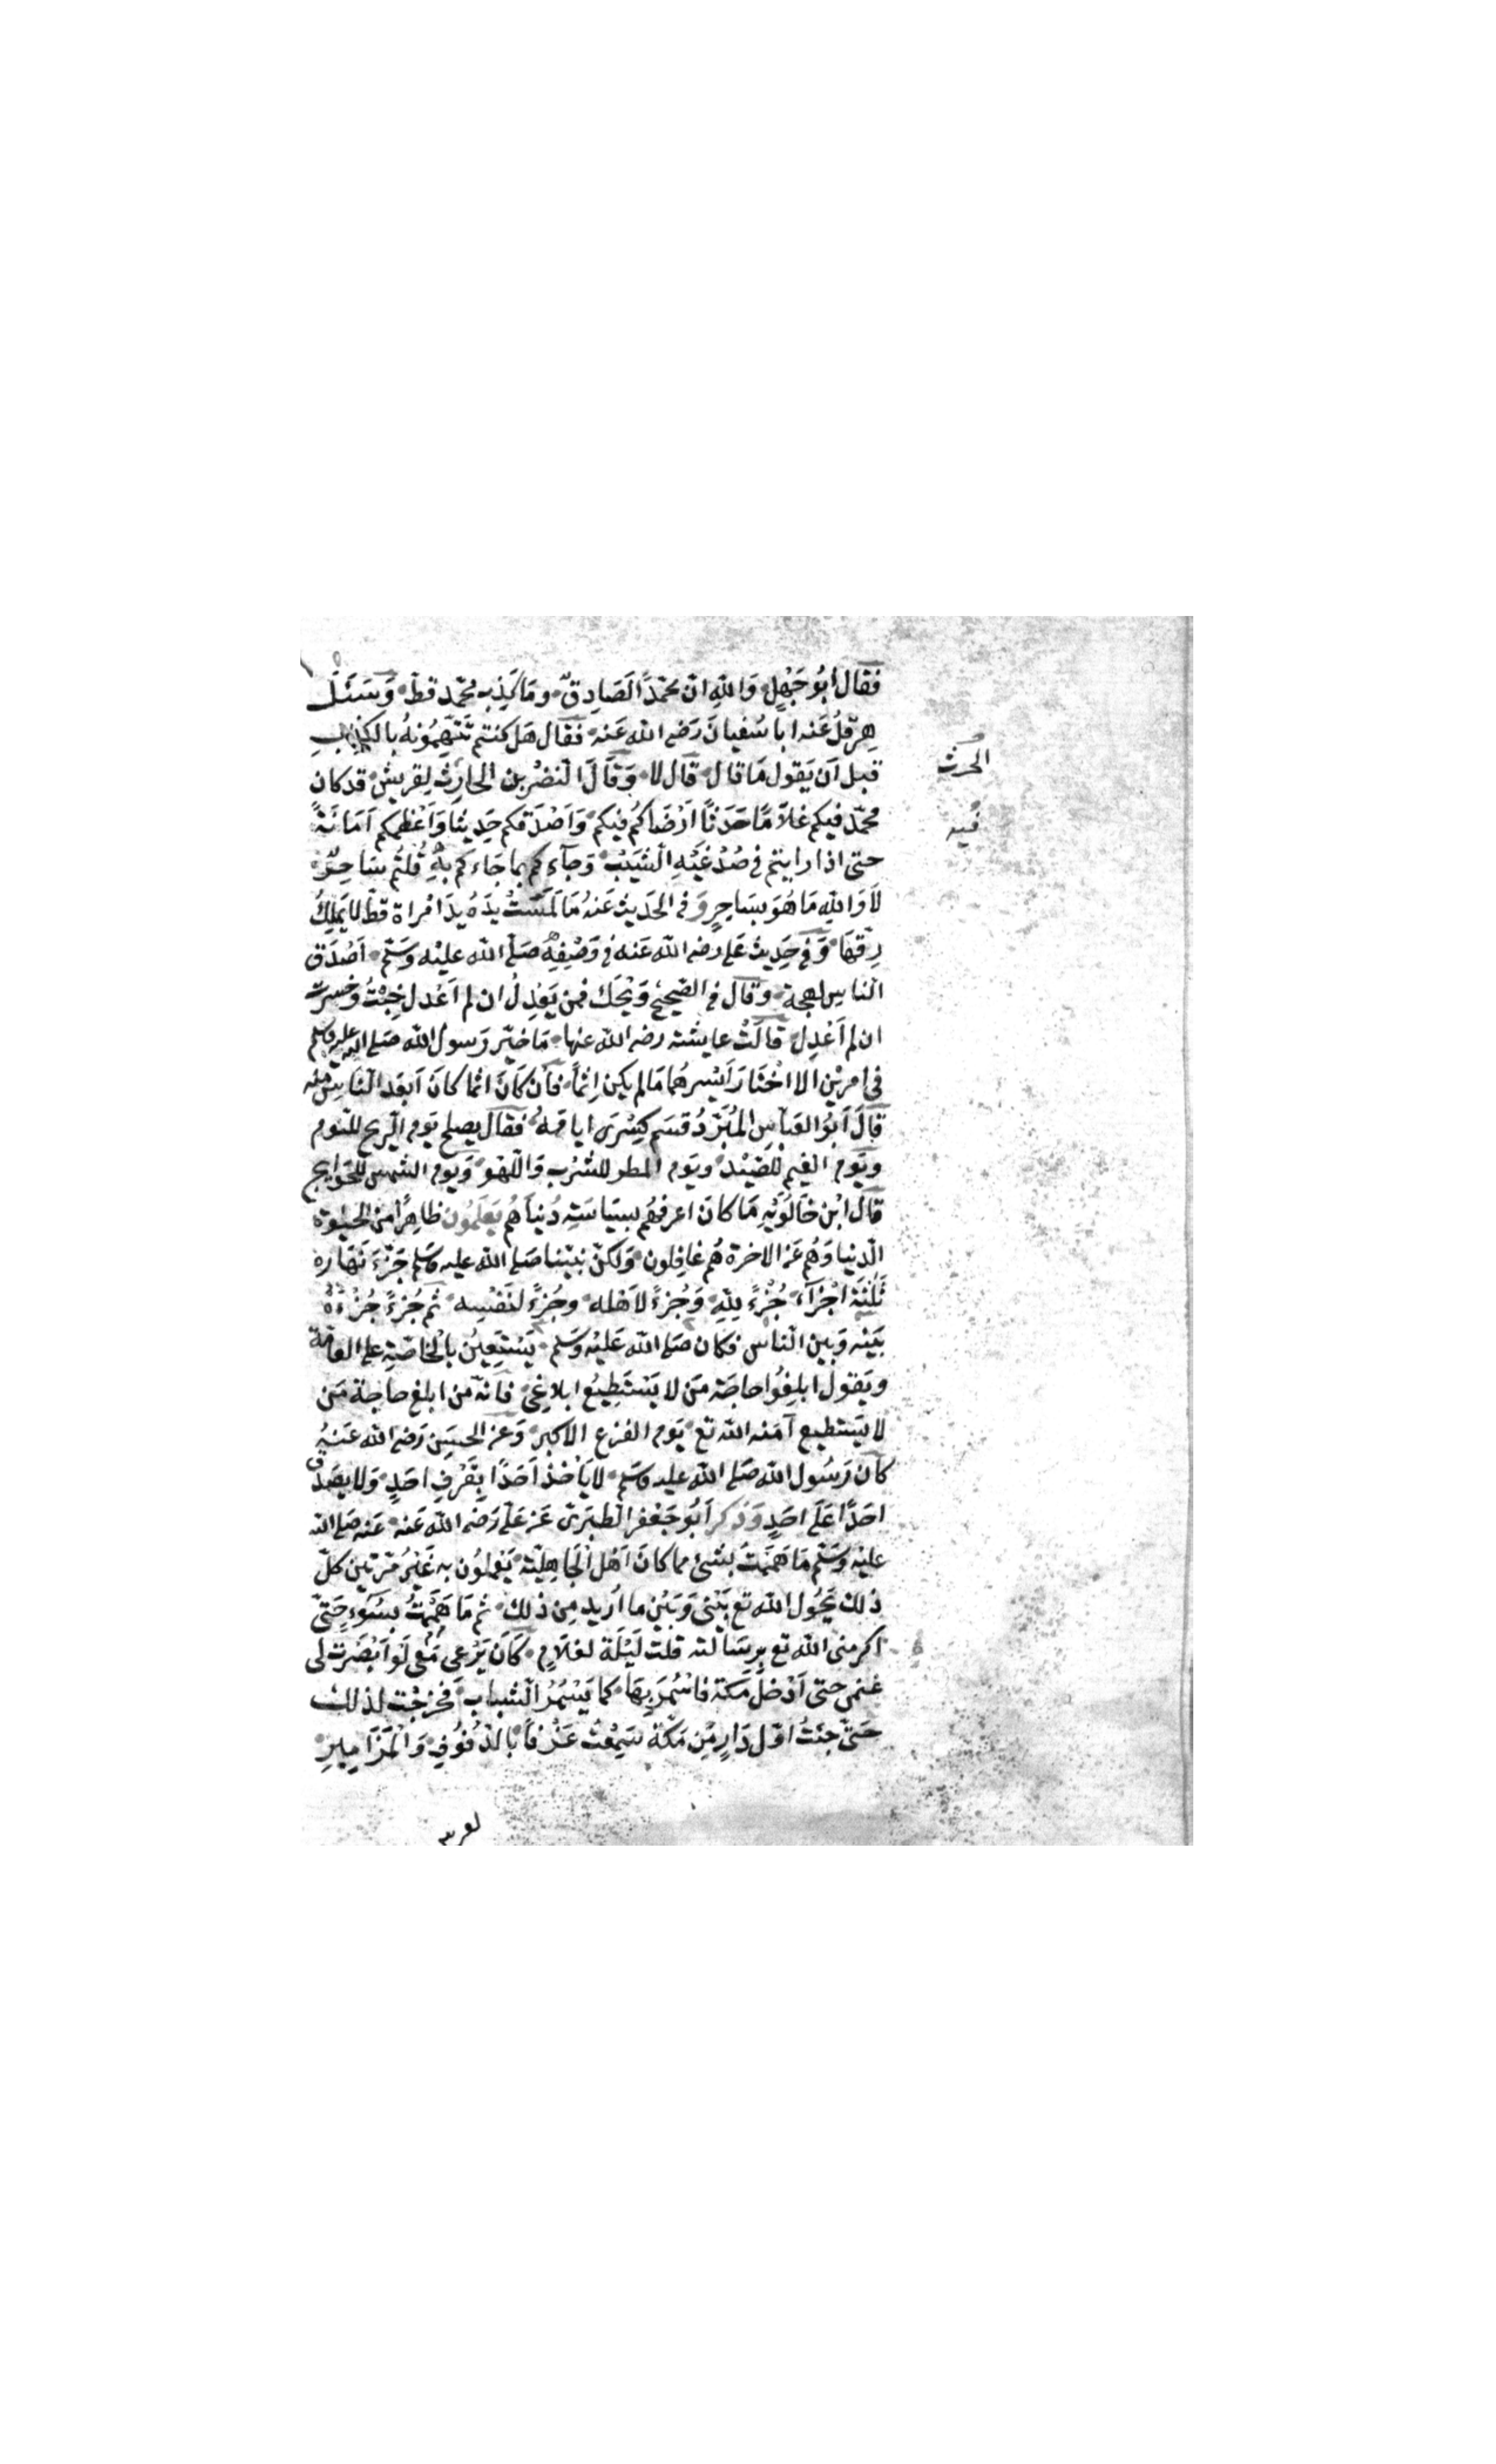 فَقَالَ أبُو جَهْلٍ وَاللهِ انّ محمّدًا لَصَادِقٌ وَمَا كَذِبَ محمّد قطّ وَسَئَلَ
هِرَقْلُ عَنه ابا سُفيانَ رَضى الله عَنه فقال هَل كنتم تَتَّهِمُونهُ بالكَذِبِ
قبل اَن يَقول مَا قالَ قال لا وَقَالَ النّضْر بن الحارِث لِقريشٍ قد كان
محمّد فيكم غلاَمًا حَدَثًا اَرْضَاكُم فيكم وَاَصْدَقكم حَدِيثًا وَاَعْظمكم اَمَانَةً
حتى اذا رايتم فى صُدْغَيْهِ الشّيْبَ وَجآءكم بما جَاءكم بِهِ قُلتُم سَاحِرٌ
لاَ وَاللهِ مَا هُوَ بسَاحِرٍ وَفى الحَديث عَنهُ مَا لَمسَتْ يَدُهُ يدَ امْراة قط لا يَملِكُ
رِقّهَا وَفى حَدِيث عَلى رضى الله عَنه فى وَصْفِهِ صَلى الله عليْه وَسَلم اَصْدَق
النّاسِ لهجة وَقالَ فى الصّحيح وَيْحَك فمن يَعْدِلُ ان لم اَعْدِل خِبْتُ وَخسِرتُ
ان لم اَعْدِل قَالَتْ عايشة رضى الله عنها مَا خيّر رَسول الله صَلى الله عليه وسلم
فى امريْن الا اخْتَارَ اَيْسرهُما مَا لم يكن اِثماً فاِن كَانَ اثما كانَ اَبعَد النّاسِ منه
قَالَ اَبُو العَبّاسِ المُبَرّدُ قَسَم كِسْرَى ايامَهُ فقَالَ يصلح يَوم الرّيح للنّوم
ويَوم الغيم للصّيْد ويَوم المطر للشُرب وَاللّهْو وَيَوم الشمس للحَوايج
قَالَ ابْن خَالَوَيْهِ مَا كانَ اعرفهُم بسيَاسَة دُنيَاهُم يَعلَمُونَ ظاهِرًا مِن الحَيٰوة
الدّنيا وَهُم عَن الاخرة هُم غافِلون وَلكنّ نبيّنا صَلى الله عليه وَسَلم جَزّءَ نَهَاره
ثَلٰثَة اَجْزَآءٍ جُزْءً لِلّٰهِ وَجُزءً لاَهْله وجُزءً لنَفْسِه ثم جُزءً جُزْءَهُ
بَيْنه وَبين النّاس فكان صَلى الله عَليْه وَسَلم يَسْتَعِيْن بالخَاصّةِ على العامّة
وَيَقول ابلِغُوا حاجَة مَن لا يَسْتَطِيعُ ابلاغِى فانّه من ابلغ حاجة مَن
لا يَستَطيع آمَنه الله تع يَوم الفزع الاكبر وَعن الحسَن رَضى الله عَنهُ
كانَ رَسُول الله صَلى الله عليه وسَلم لا يَأخُذ اَحَدًا بِقَرْفِ احَدٍ وَلا يصَدّق
احَدًا عَلَى احَدٍ وَذكر اَبُو جَعْفر الطبَرِى عَن عَلى رَضى الله عَنه عَنه صَلى الله
عليه وَسَلم مَا هَممْتُ بشئ مما كانَ اَهْل الجَاهِلِيّة يَعْملُون به غَيْرُ مَرّتين كلّ
ذلك يَحُول الله تع بَيْنى وَبَيْن ما اُريد مِن ذلك ثم مَا هَمَمْتُ بسُوءٍ حَتّى
اكرمنى الله تع بِرِسَالته قلت لَيْلَة لغلاَمٍ كَانَ يَرْعَى مَعِى لَو اَبْصَرت لى
غنمى حتى اَدْخلَ مَكة فاسْمُرَ بِهَا كما يَسْمُرُ الشباب فخرجْت لذلك
حَتّى جئتُ اوّل دَارٍ مِن مَكّة سَمِعْتُ عَزْفاً بالدّفُوفِ وَالمَزَامِيرِ
الحرث
فيه